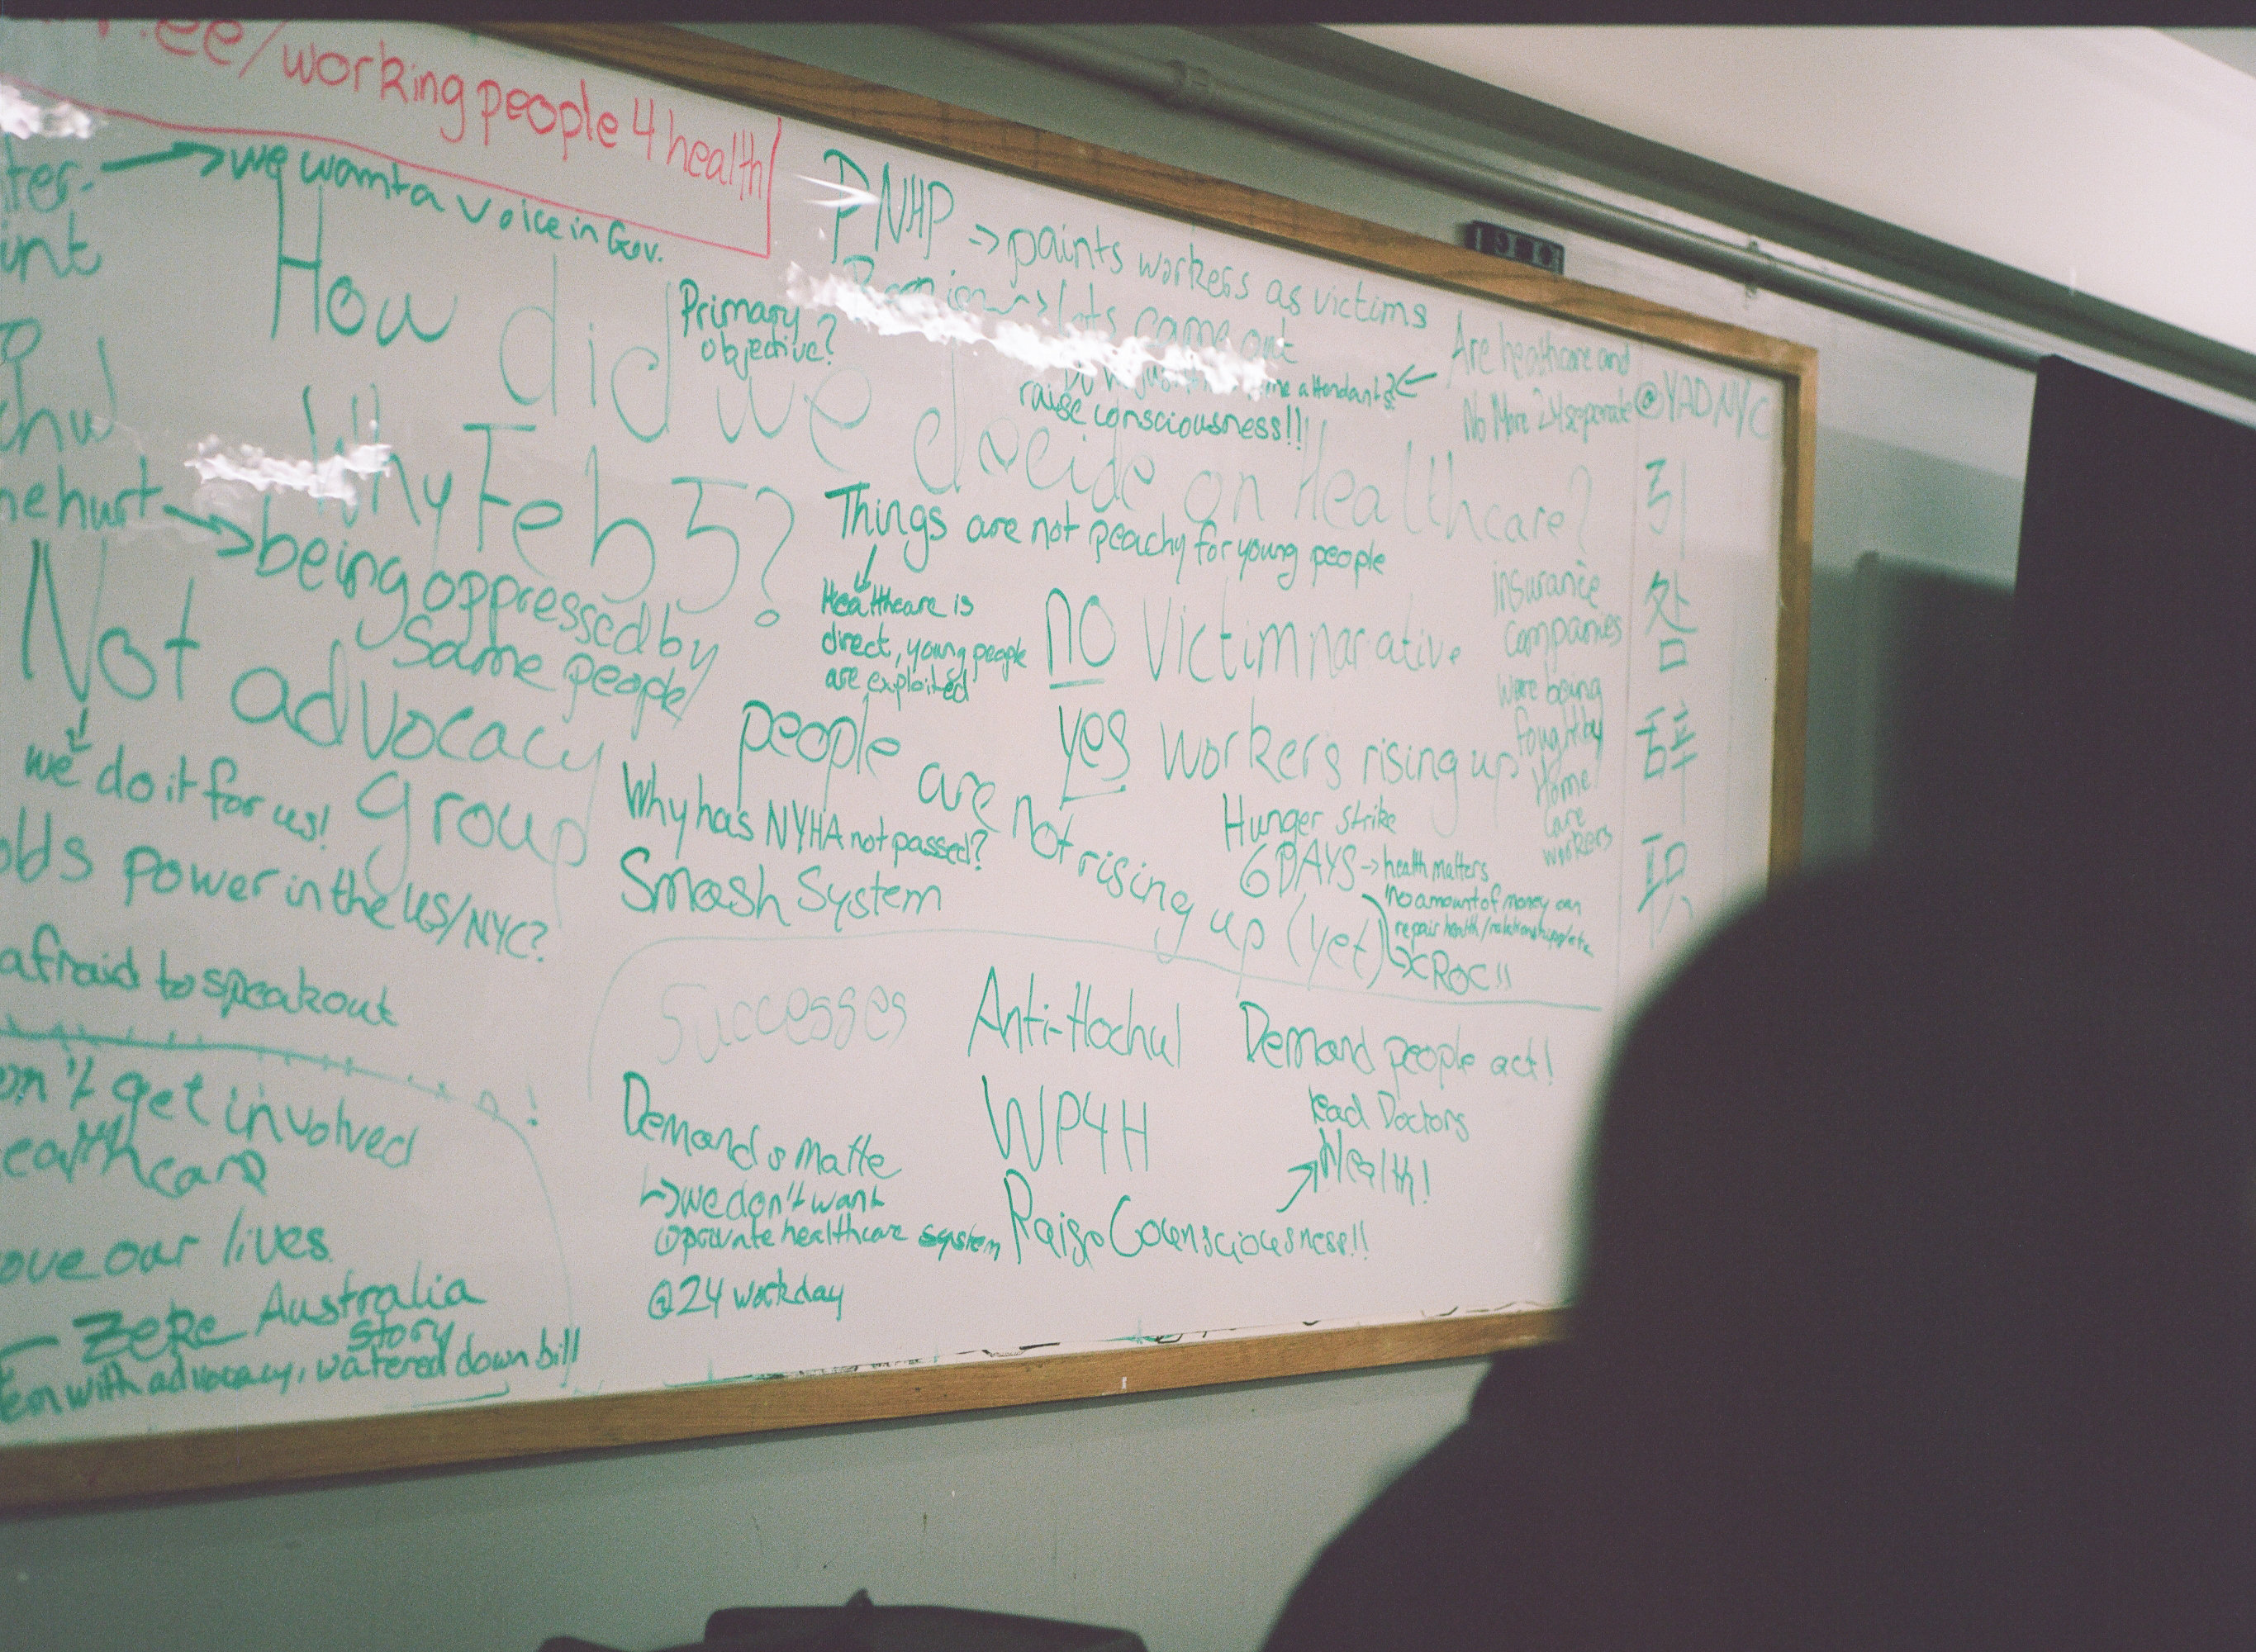 .ee/working people 4 health
we want a voice in Gov.
How did we decide on Healthcare?
Primary
objective?
PNHP -> paints workers as victims
lots came out
attendants?
raise consciousness!!!
Are healthcare and
No More 24 separate
@YADNYC
引
咎
辞
职
Why Feb 5?
hurt
being oppressed by
same people
Not advocacy
group
we do it for us!
power in the US/NYC?
afraid to speak out
get involved
our lives
Zeke Australia
story
with advocacy, watered down bill
Things are not peachy for young people
Healthcare is
direct, young people
are exploited
no victim narative
yes workers rising up
insurance
companies
were being
fought by
Home
Care
workers
people are not rising up (yet)
Why has NYHA not passed?
Smash System
Hunger strike
6 DAYS -> health matters
no amount of money can
repair health/
ROC!!
Successes
Anti-Hochul
Demand people act!
WP4H
Lead Doctors
Health!
Demands Matte
we don't want
① private healthcare system
Raise Counsciousness!!
@24 workday